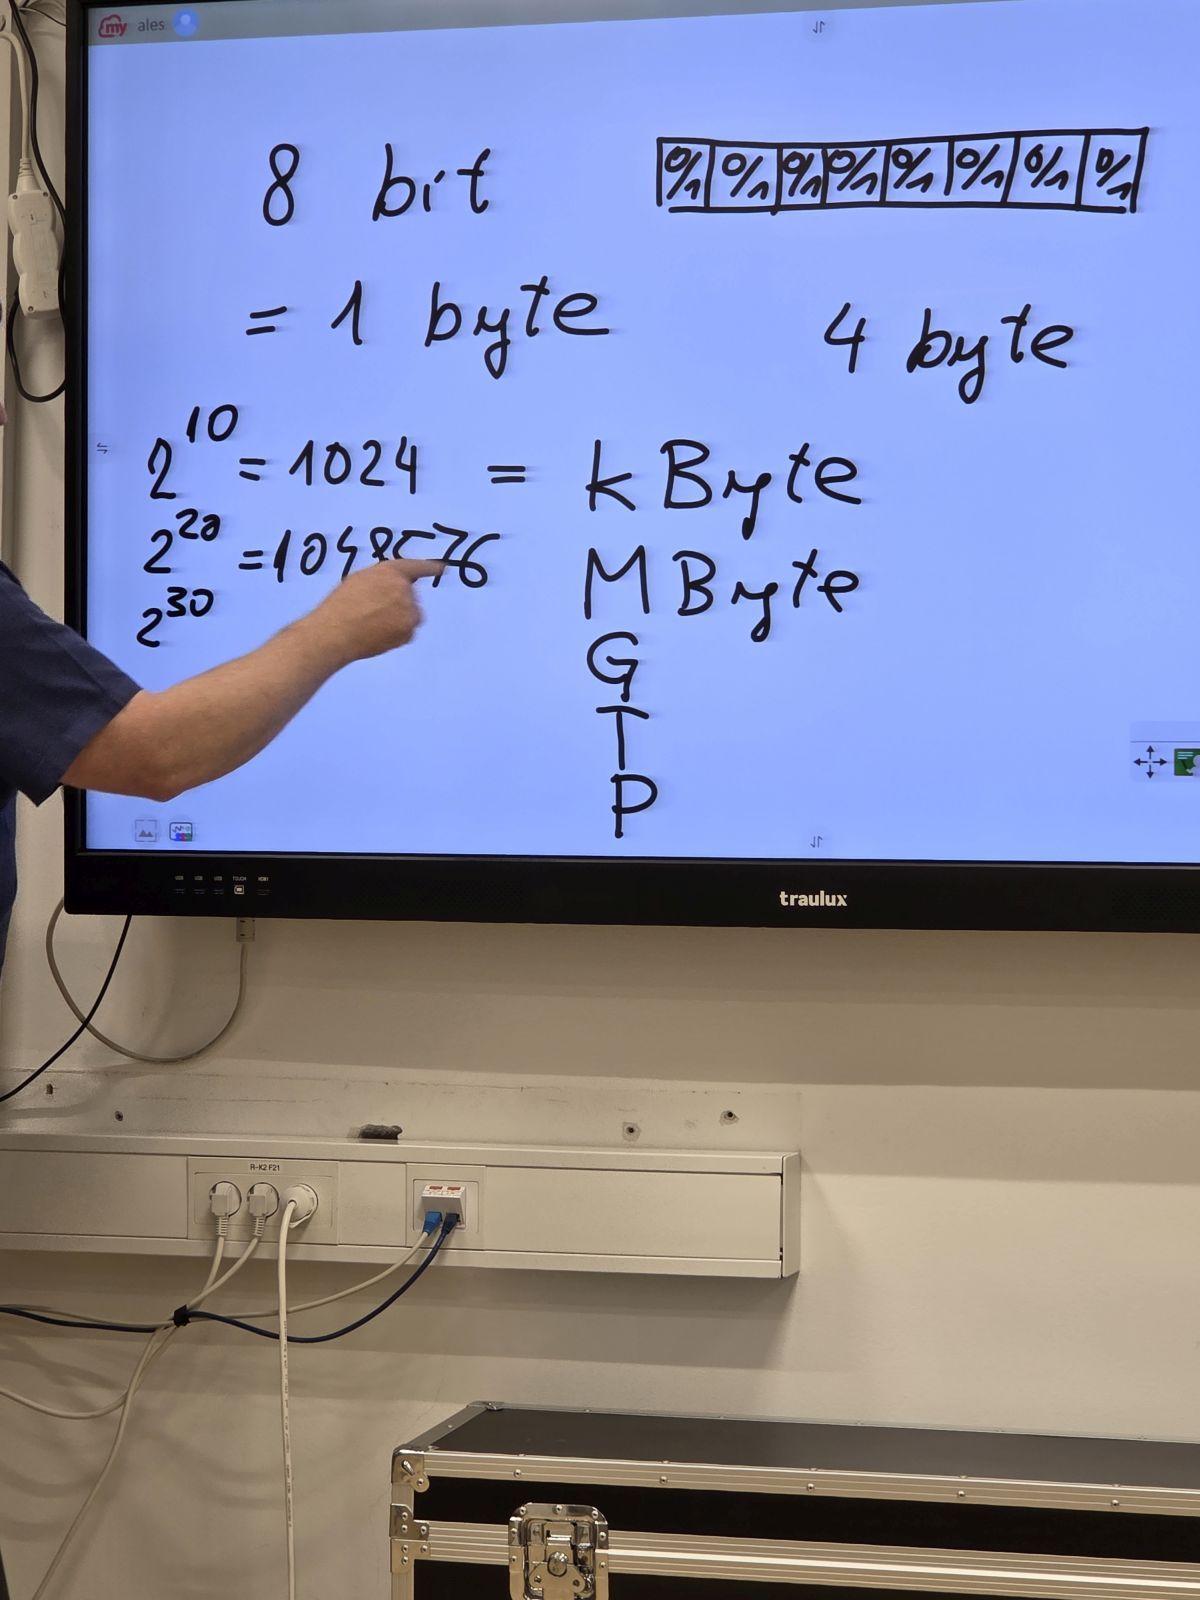 my ales
8 bit
0/1 0/1 0/1 0/1 0/1 0/1 0/1 0/1
= 1 byte
4 byte
2^10 = 1024 = kByte
2^20 = 1048576 MByte
2^30
G
T
P
USB USB USB TOUCH HDMI
traulux
R-K2 F21